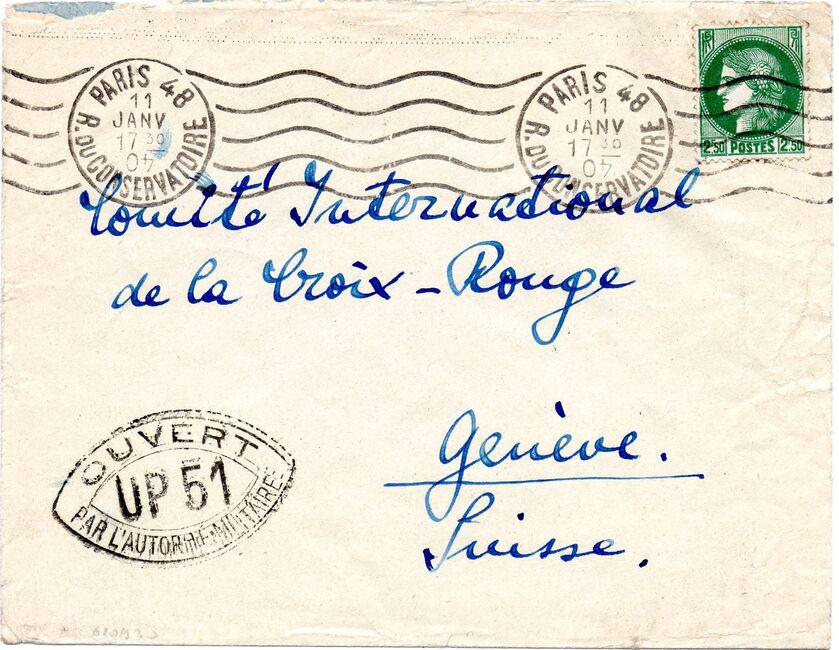 PARIS 48
11
JANV
17 30
40
R. DU CONSERVATOIRE
PARIS 48
11
JANV
17 30
40
R. DU CONSERVATOIRE
RF
2,50 POSTES 2,50
Comité International
de la Croix-Rouge
Genève.
Suisse.
OUVERT
UP 51
PAR L'AUTORITÉ MILITAIRE